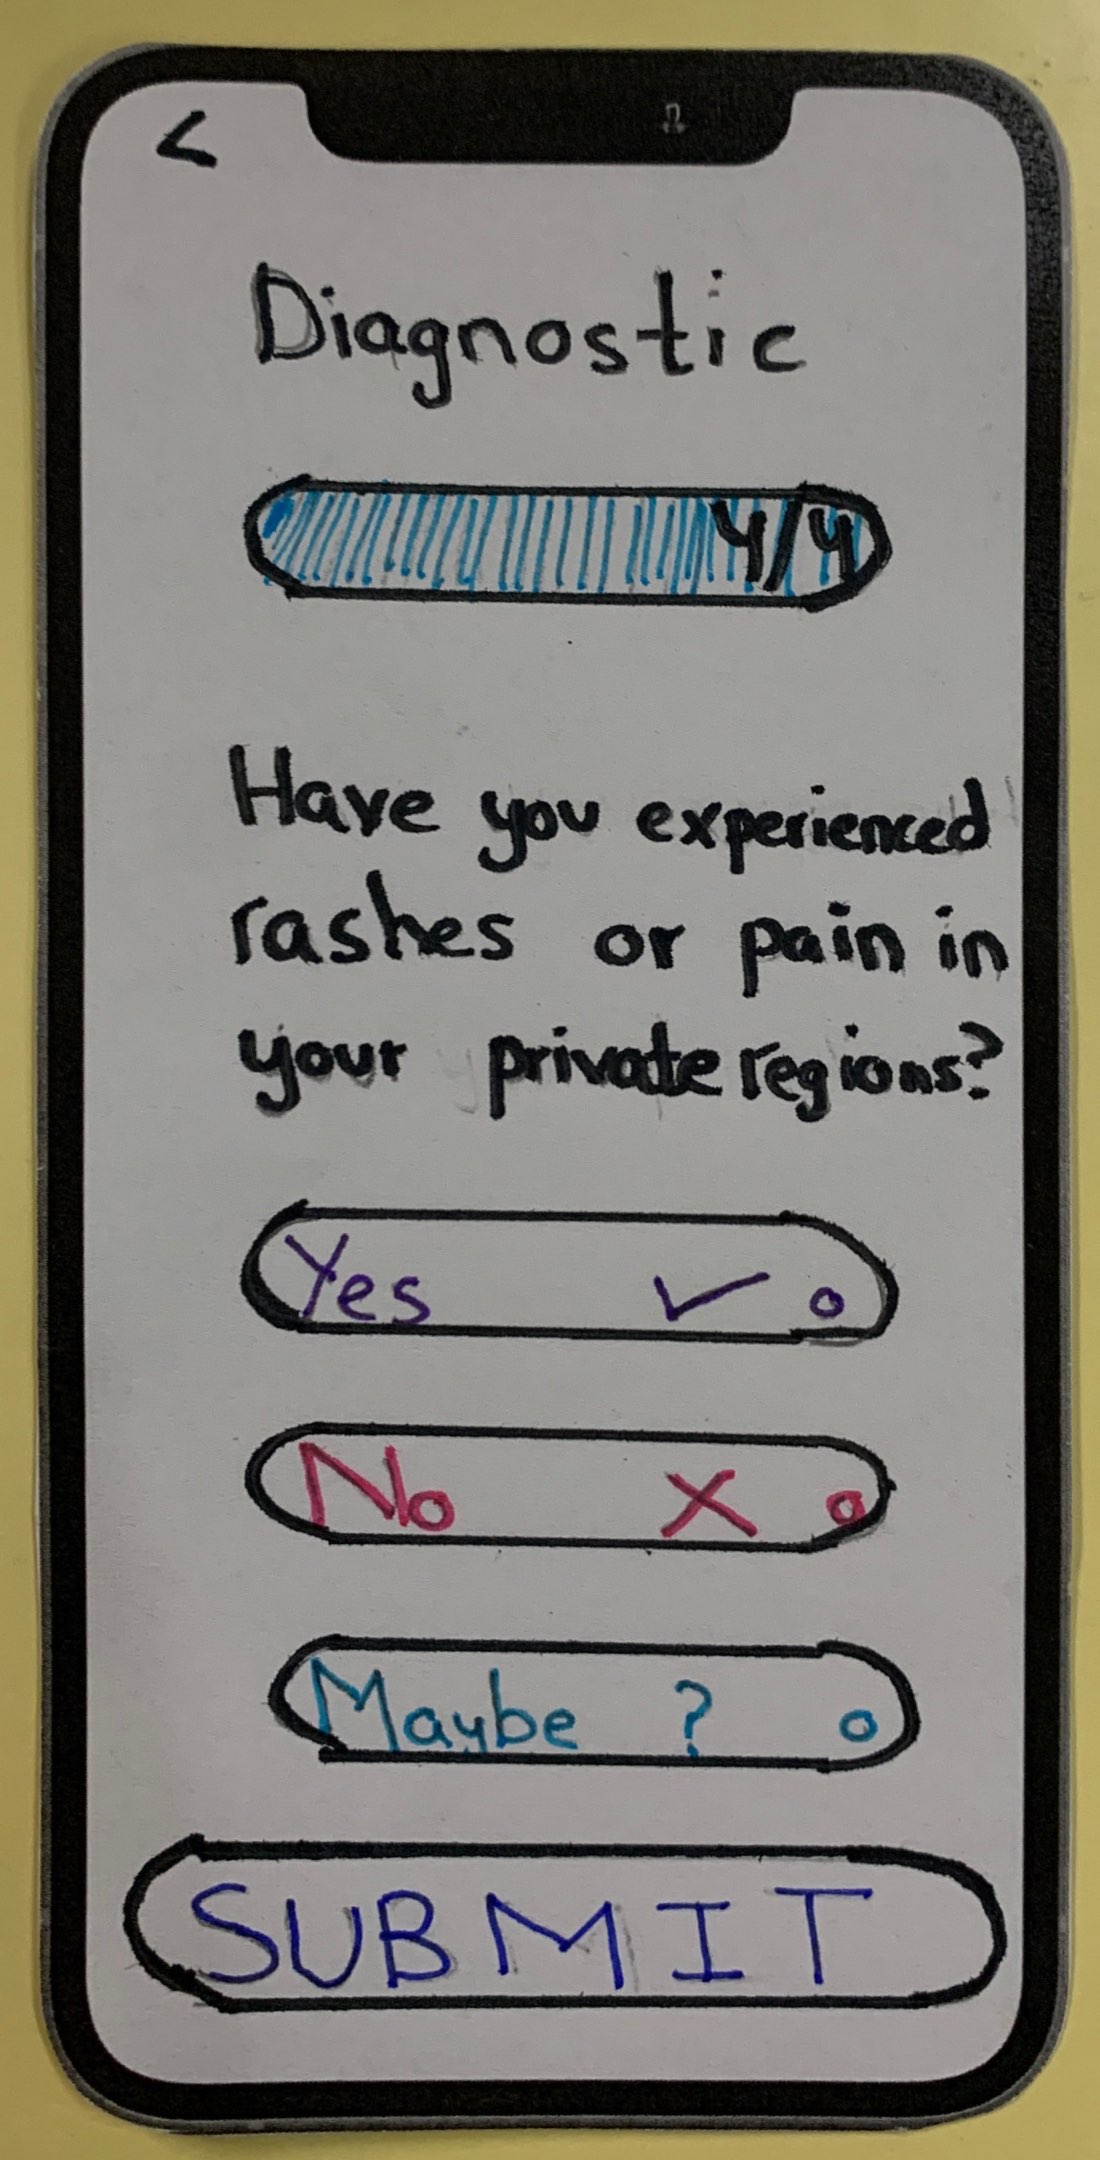 <
Diagnostic
4/4
Have you experienced
rashes or pain in
your private regions?
Yes ✓ o
No X o
Maybe ? o
SUBMIT